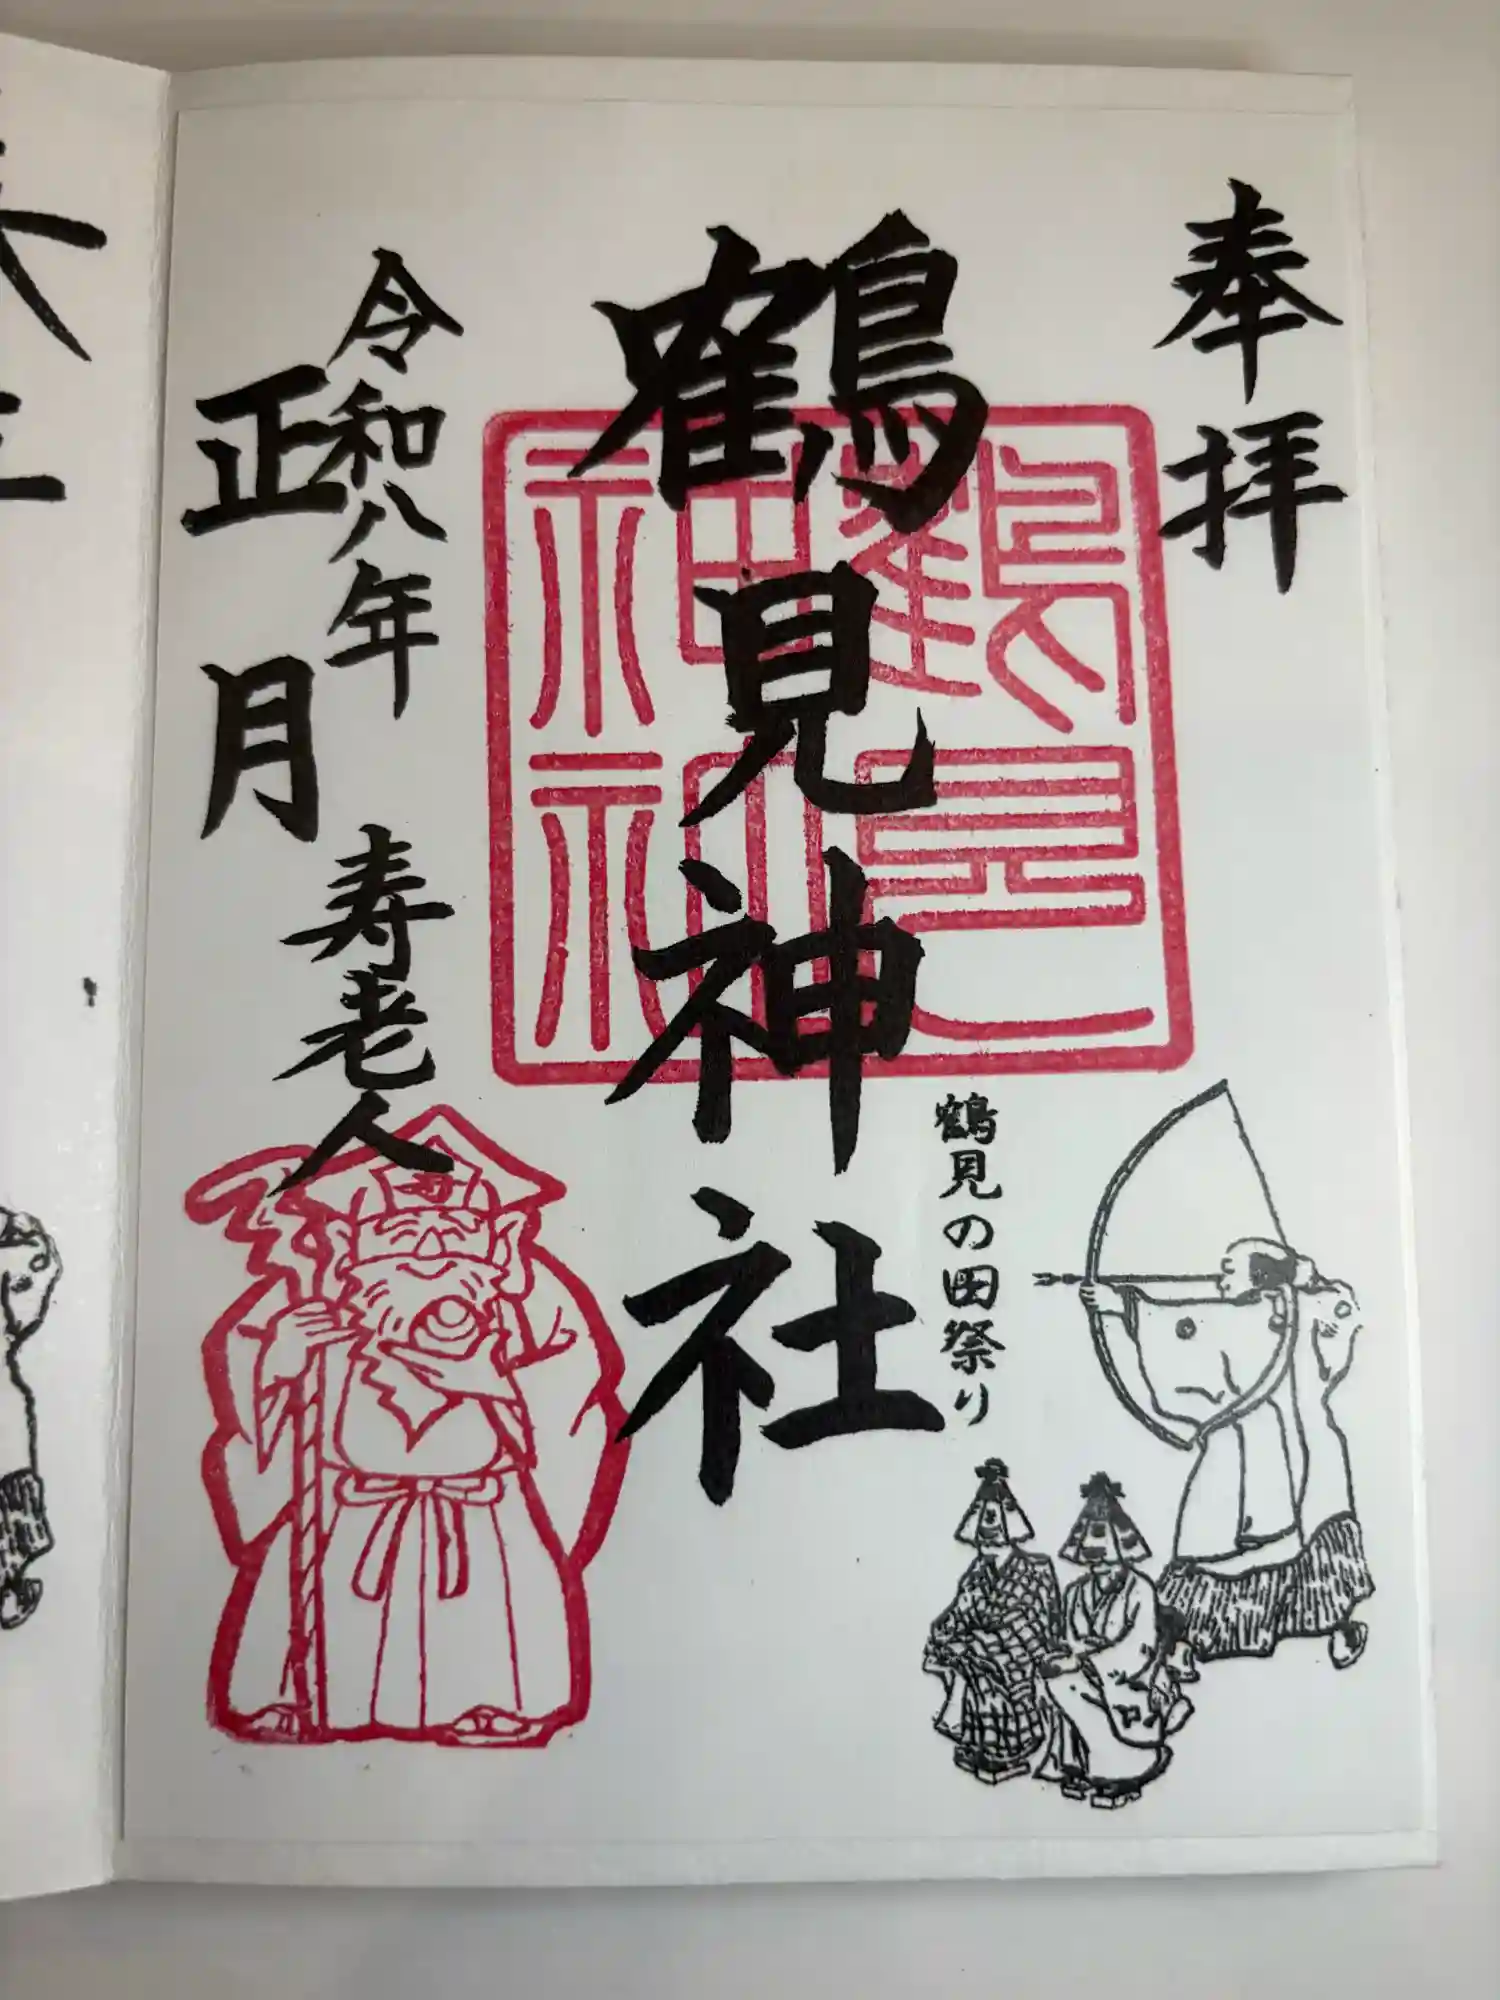 奉拝
鶴見神社
鶴見
神社
鶴見の田祭り
令和八年
正月
寿老人